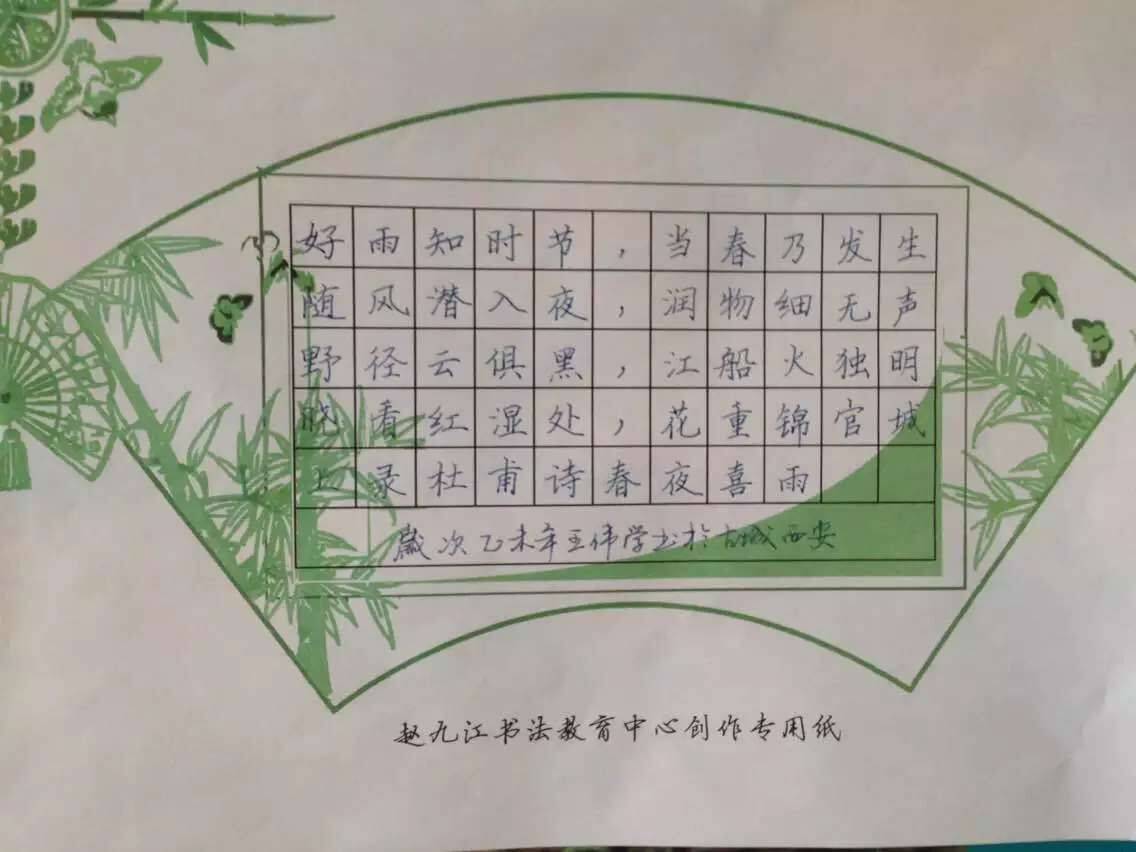 好雨知时节，当春乃发生
随风潜入夜，润物细无声
野径云俱黑，江船火独明
晓看红湿处，花重锦官城
上录杜甫诗春夜喜雨
歲次乙未年王伟学书於古城西安
赵九江书法教育中心创作专用纸